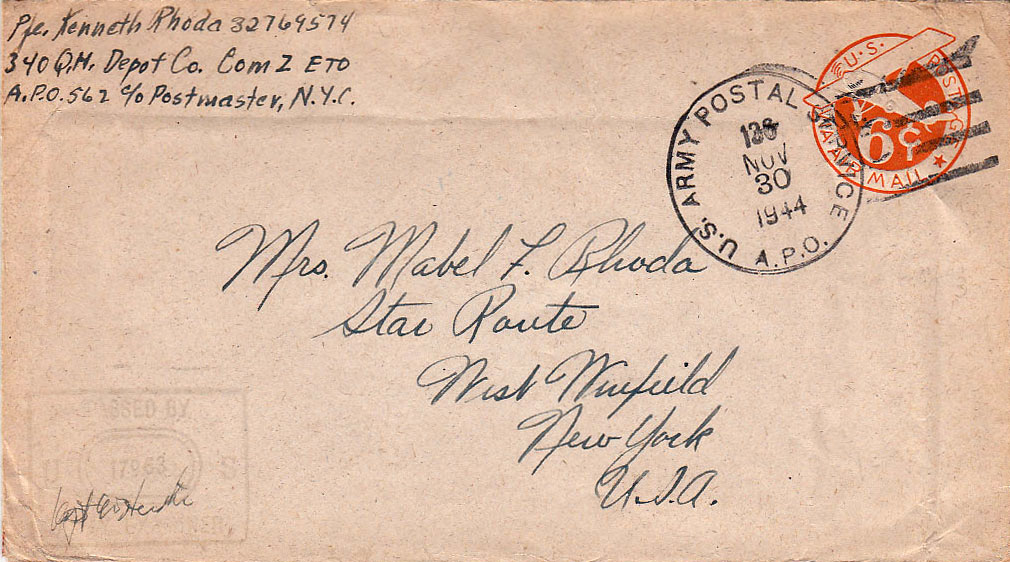 Pfc. Kenneth Rhoda 32769574
340 Q.M. Depot Co. Com Z ETO
A.P.O. 562 c/o Postmaster, N.Y.C.
U.S. ARMY POSTAL SERVICE
NOV
30
1944
A.P.O.
U.S. POSTAGE
6¢
VIA AIR MAIL
Mrs. Mabel F. Rhoda
Star Route
West Winfield
New York
U.S.A.
PASSED BY
U 17963 S